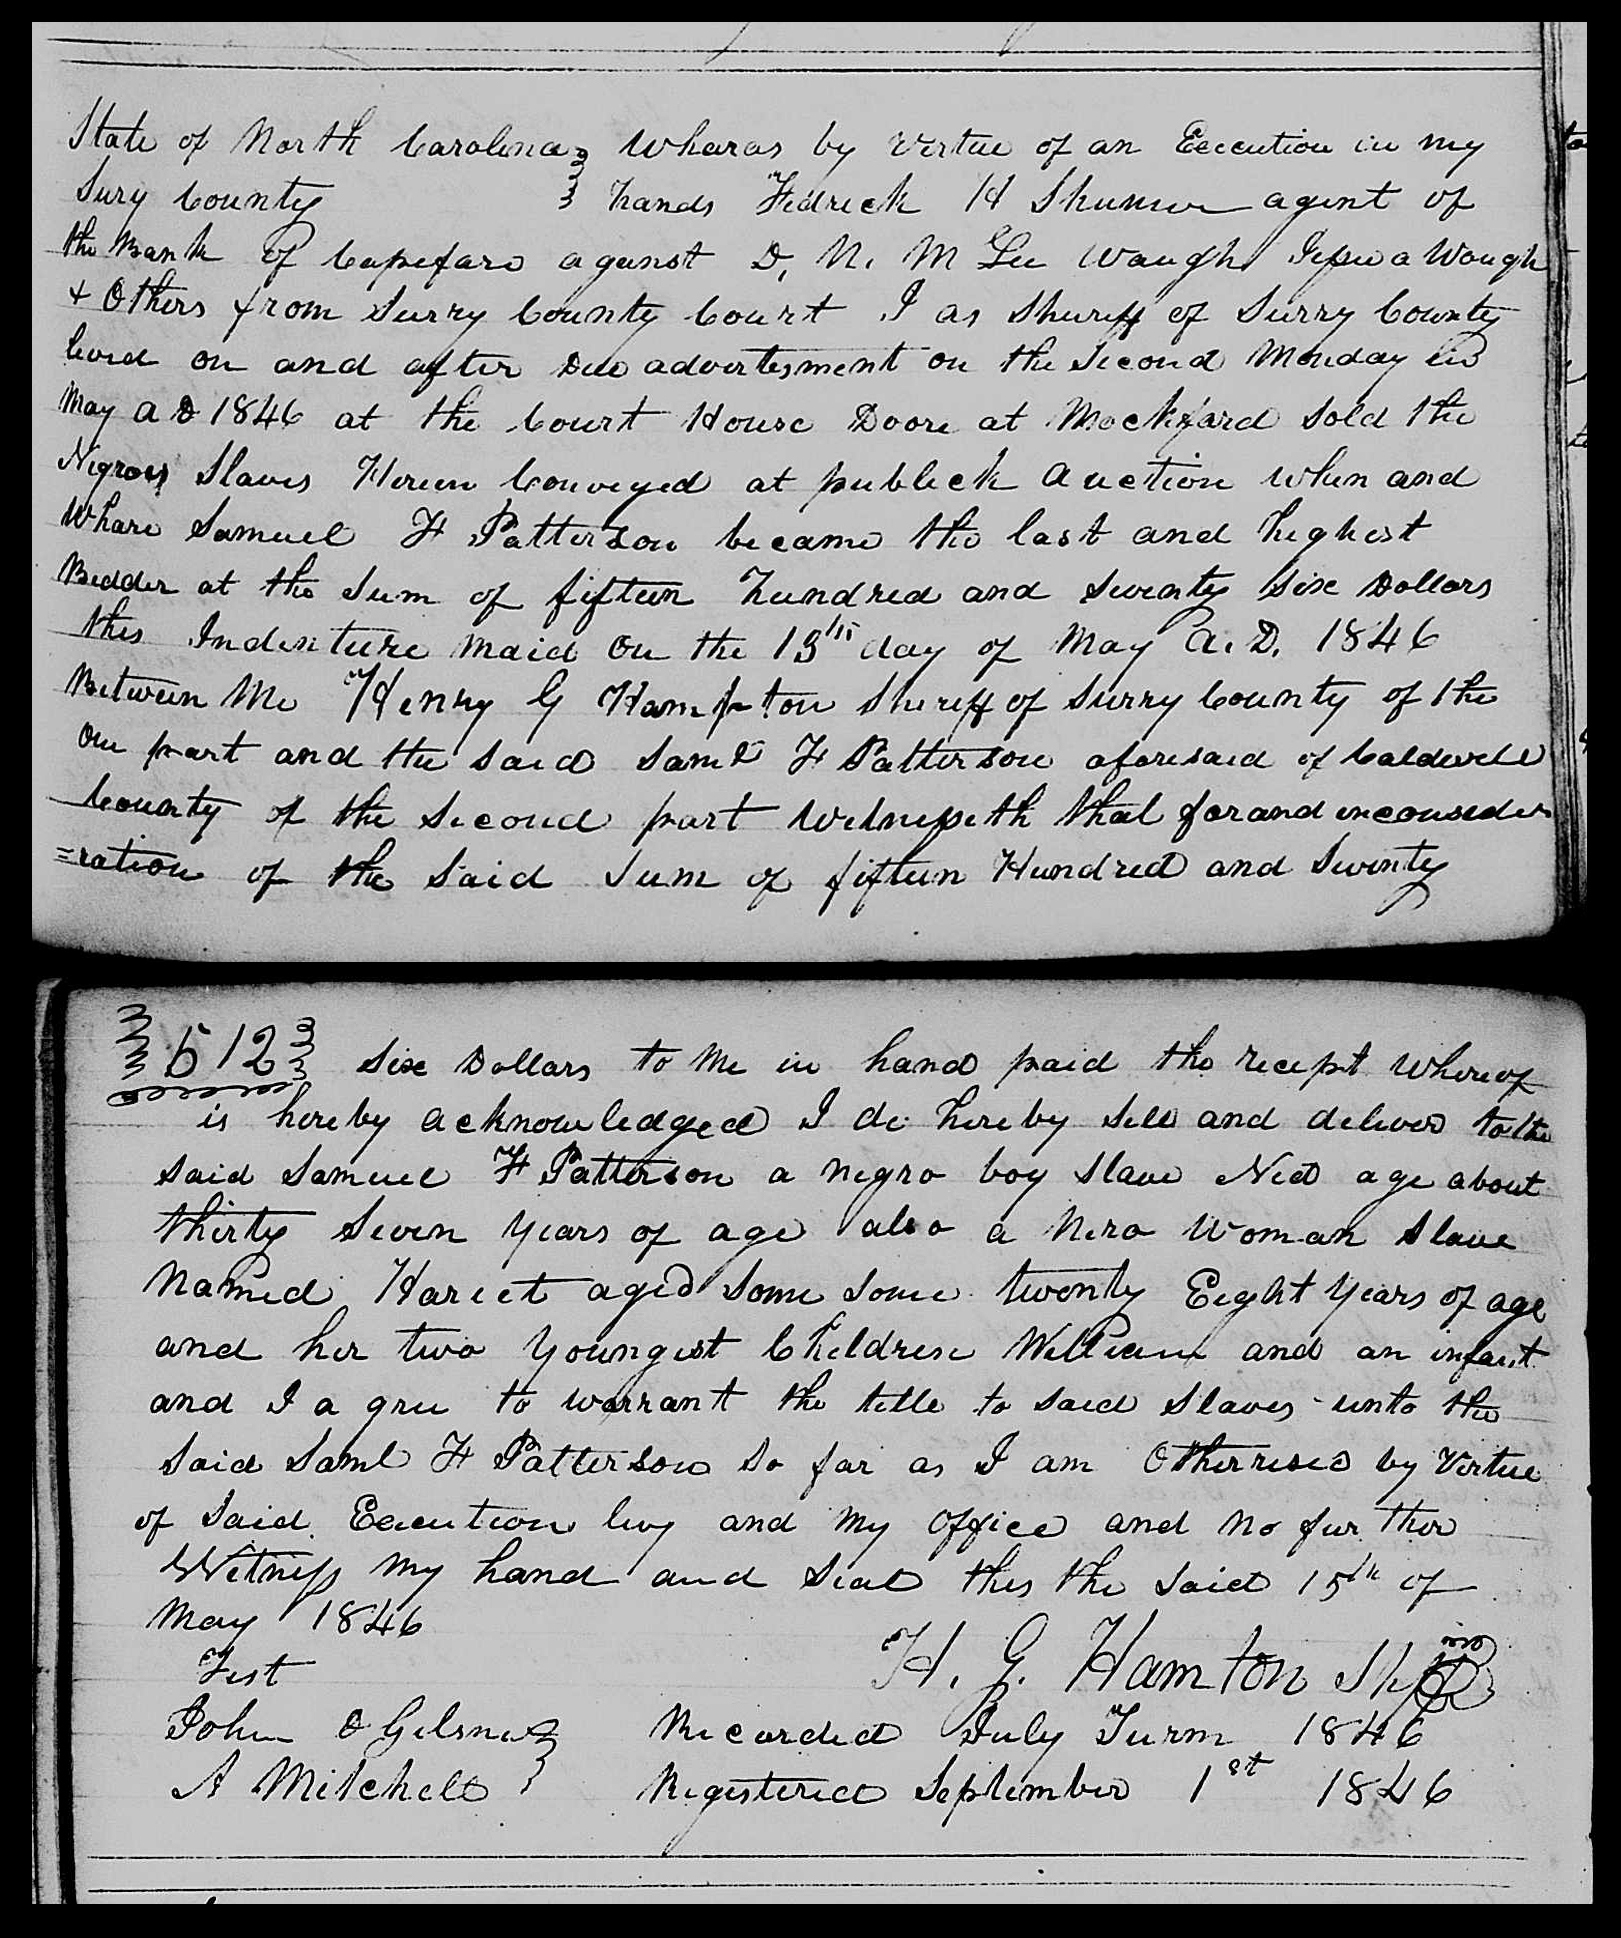 State of North Carolina Wharas by Virtue of an Execution in my
Sury County hands Fedrick H Shuman agent of
the Bank of Capefare aganst D, N. M Lee Waugh Jessee a Waugh
+ Others from Surry County Court I as Sheriff of Surry County
levid on and after Due advertesment on the Second Monday in
May A D 1846 at the Court House Doore at Mockford Sold the
Negroes Slaves Herein Conveyed at publick auction when and
Whare Samuel F Patterson became the last and highest
Bedder at the Sum of fifteen hundred and Seventy Six Dollars
this Indenture maid on the 15th day of May A. D. 1846
Between Me Henry G Hampton Sheriff of Surry County of the
one part and the Said Saml F Patterson aforesaid of Caldwell
County of the Second part Witnesseth that for and in consider
=ration of the Said Sum of fifteen Hundred and Seventy
512 Six Dollars to Me in hand paid the recept Whereof
is hereby acknowledged I do hereby Sell and deliver to the
Said Samuel F Patterson a negro boy Slave Ned age about
thirty Seven years of age also a Nero Woman Slave
Named Hariet aged Some Some twenty Eight years of age
and her two Youngest Children William and an infant
and I a gree to warrant the title to Said Slaves unto the
Said Saml F Patterson So far as I am Otherrised by Virtue
of Said Execution levy and my office and no fur ther
Witness my hand and Seal this the Said 15th of
May 1846
Test H. G. Hamton Shff
John Recorded July Turm 1846
A Mitchell Registered September 1st 1846